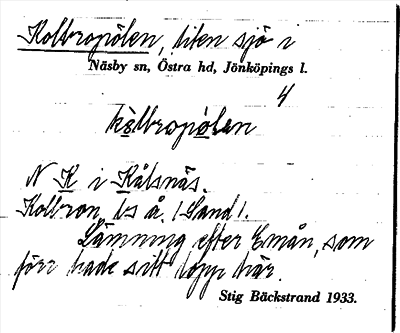 Kolbropölen, liten sjö i
Näsby sn, Östra hd, Jönköpings l.
4
kòlbropö̀len
N K i Kålsnäs.
Kolbron, bs å. (Sand).
Lämning efter Emån, som
förr hade sitt lopp här.
Stig Bäckstrand 1933.